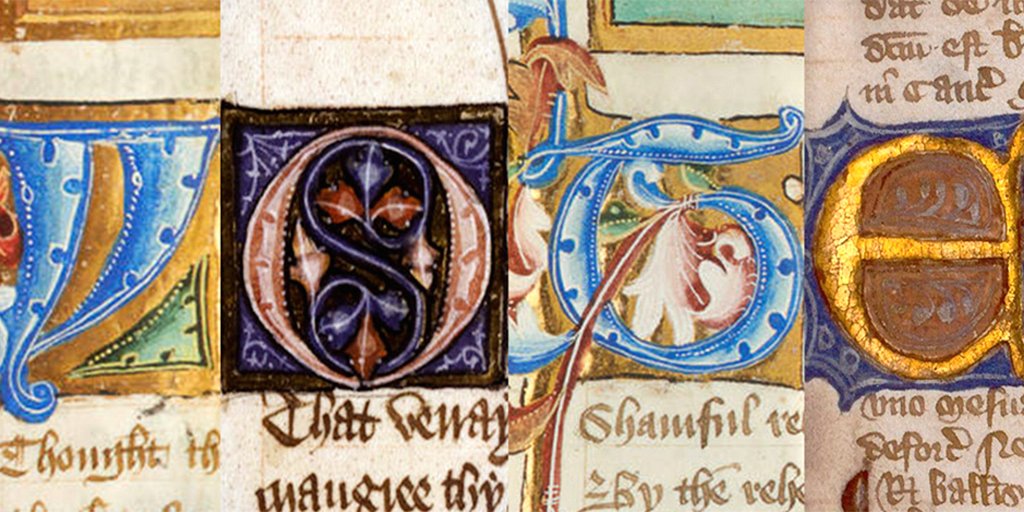 V
Thought th
O
That verray
maugree thy
T
Shamful re
By the rehe
dat de
dcm est
in Canc
E
vno mesu
deforc
Et ballios